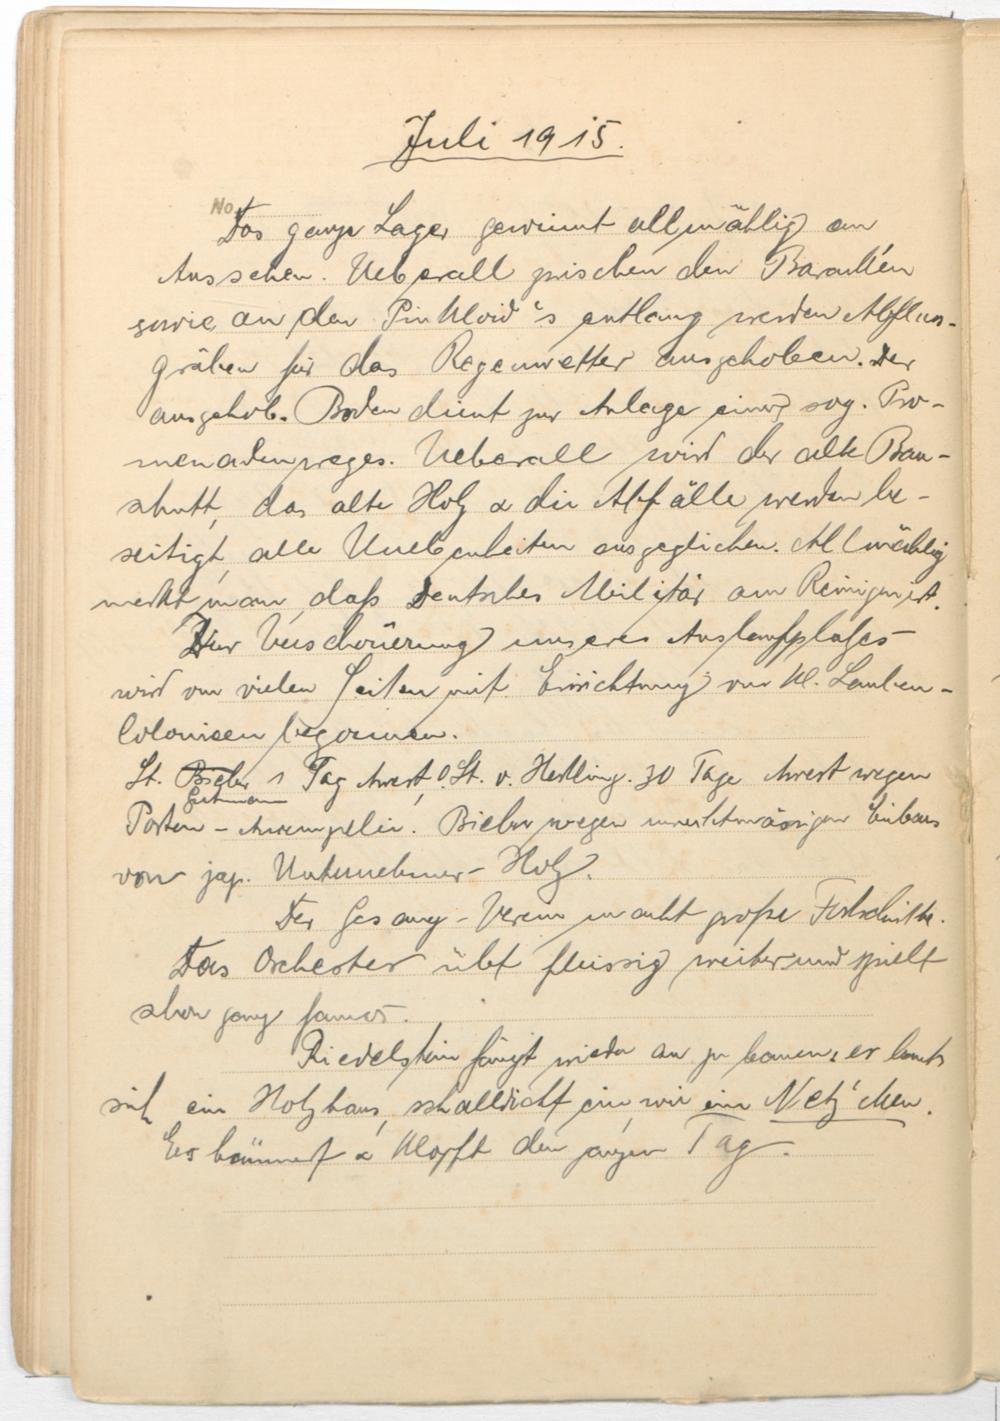 Juli 1915.
No.
Das ganze Lager gewinnt allmählig an
Aussehen. Ueberall zwischen den Baracken
sowie an den Pinkloid's entlang werden Abfluss-
gräben für das Regenwetter ausgehoben. Der
ausgehob. Boden dient zur Anlage eines sog. Pro-
menadenweges. Ueberall wird der alte Bau-
schutt, das alte Holz & die Abfälle werden be-
seitigt, alle Unebenheiten ausgeglichen. Allmählig
merkt man, daß Deutsches Militär am Reinigen ist.
Zur Verschönerung unseres Auslaufplatzes
wird von vielen Seiten mit Errichtung von kl. Lauben-
Colonieen begonnen.
Lt. Bieber 1 Tag Arrest, O.Lt. v. Hertling. 30 Tage Arrest wegen
Gutmann
Posten - Anrempelei. Bieber wegen unrechtmässigen Einbaus
von jap. Unternehmer - Holz.
Der Gesang - Verein macht große Fortschritte.
Das Orchester übt fleissig weiter und spielt
schon ganz famos.
Riedelstein fängt wieder an zu bauen, er baut
sich ein Holzhaus, schalldicht ein, wie ein Netz'chen.
Es hämmert & klopft den ganzen Tag.